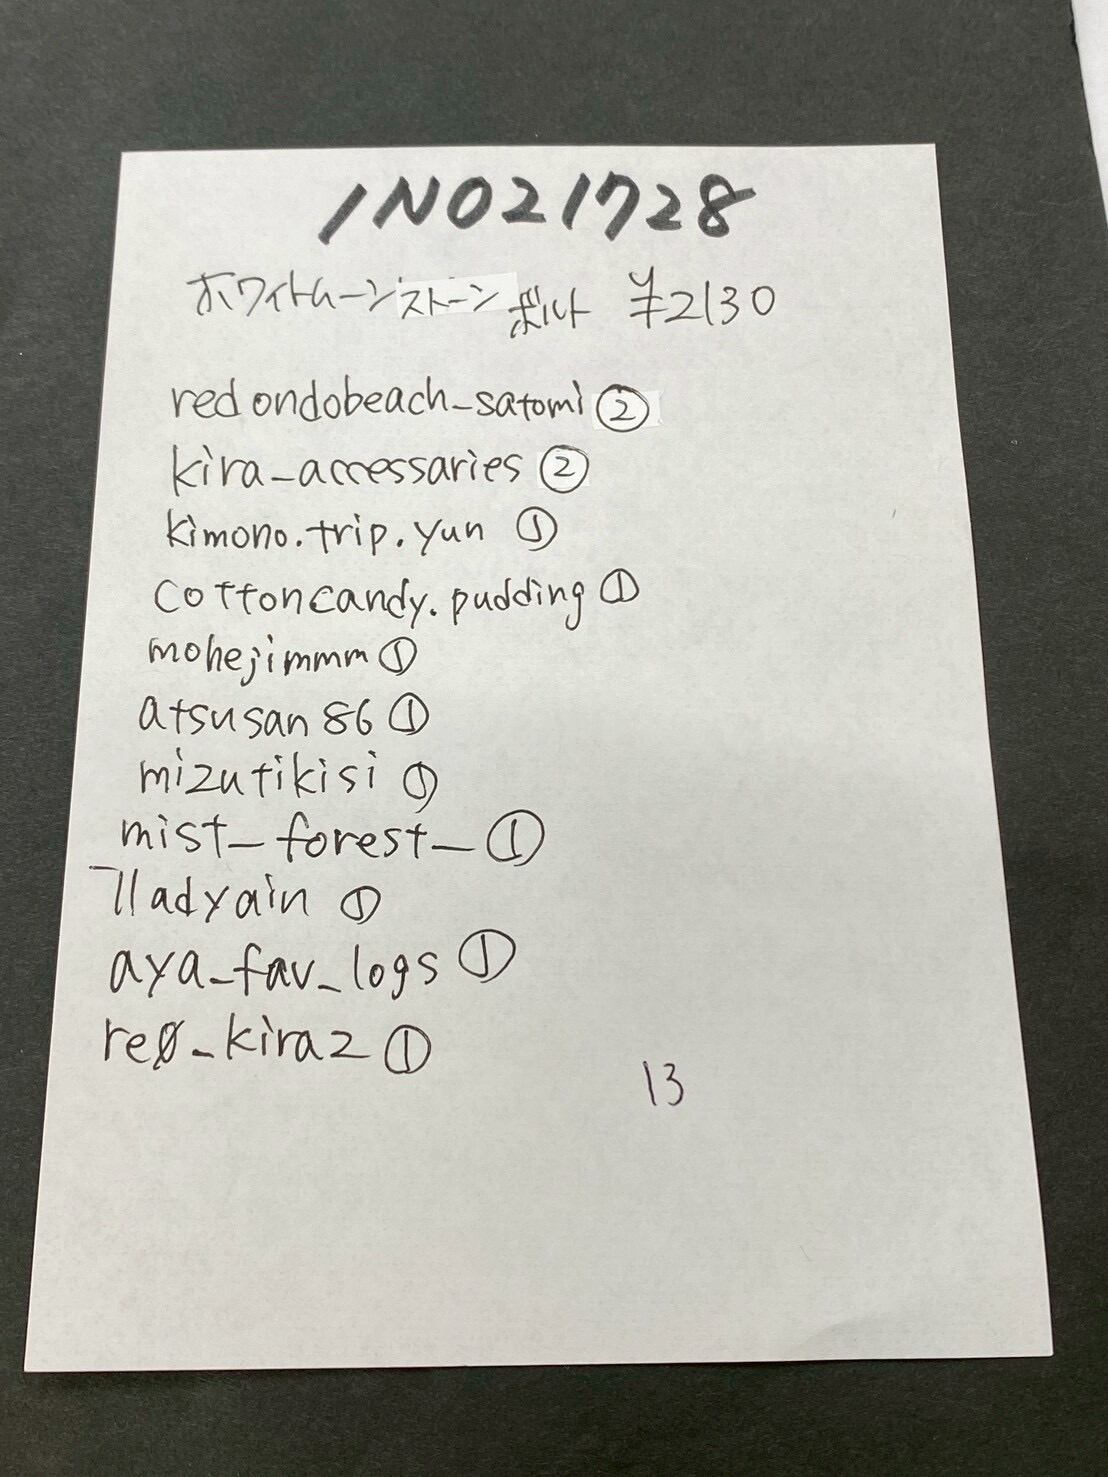 1N021728
ホワイトムーンストーン ボルト ¥2130
redondobeach_satomi ②
kira_accessaries ②
kimono.trip.yun ①
cottoncandy.pudding ①
mohejimmm ①
atsusan86 ①
mizutikisi ①
mist_forest_ ①
71ladyain ①
aya_fav_logs ①
re0_kira2 ①
13